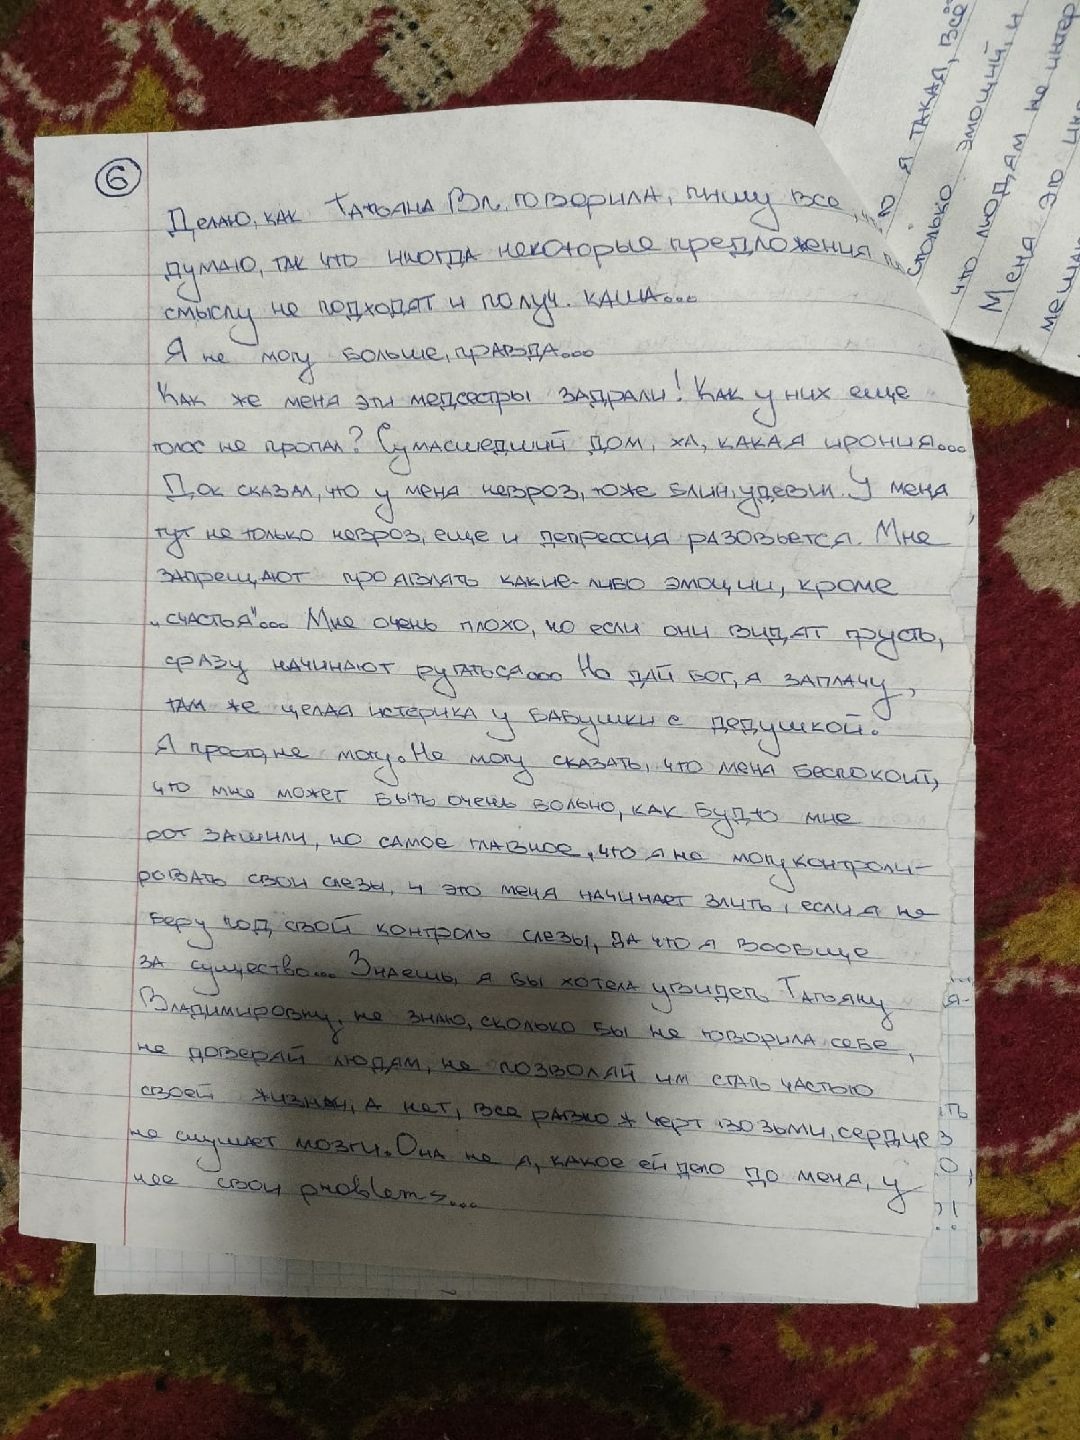 6
Делаю, как Татьяна Вл. говорила, пишу все,
думаю, так что иногда некоторые предложения
смыслу не подходят и получ. каша...
Я не могу больше, правда...
Как же меня эти медсестры задрали! Как у них еще
голос не пропал? Сумасшедший дом, ха, какая ирония...
Док сказал, что у меня невроз, тоже блин, удевил. У меня
тут не только невроз, еще и депрессия разовьется. Мне
запрещают проявлять какие-либо эмоции, кроме
„счастья"... Мне очень плохо, но если они видят грусть,
сразу начинают ругаться... Не дай бог, я заплачу,
там же целая истерика у бабушки с дедушкой.
Я просто, не могу. Не могу сказать, что меня беспокоит,
что мне может быть очень больно, как будто мне
рот зашили, но самое главное, что я не могу контроли-
ровать свои слезы, и это меня начинает злить, если я не
беру под свой контроль слезы, да что я вообще
за существо... Знаешь, я бы хотела увидеть Татьяну
Владимировну, не знаю, сколько бы не говорила себе,
не доверяй людям, не позволяй им стать частью
своей жизни, а нет, все равно ж черт возьми, сердце
не слушает мозги. Она не я, какое ей дело до меня, у
нее свои problems...
я такая, все
столько эмоций, и
что людям не интер
Меня это